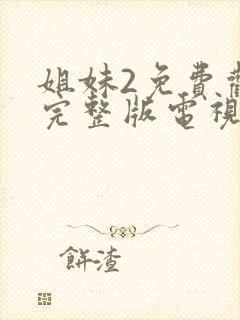 姐妹2免費
完整版電視
餅渣